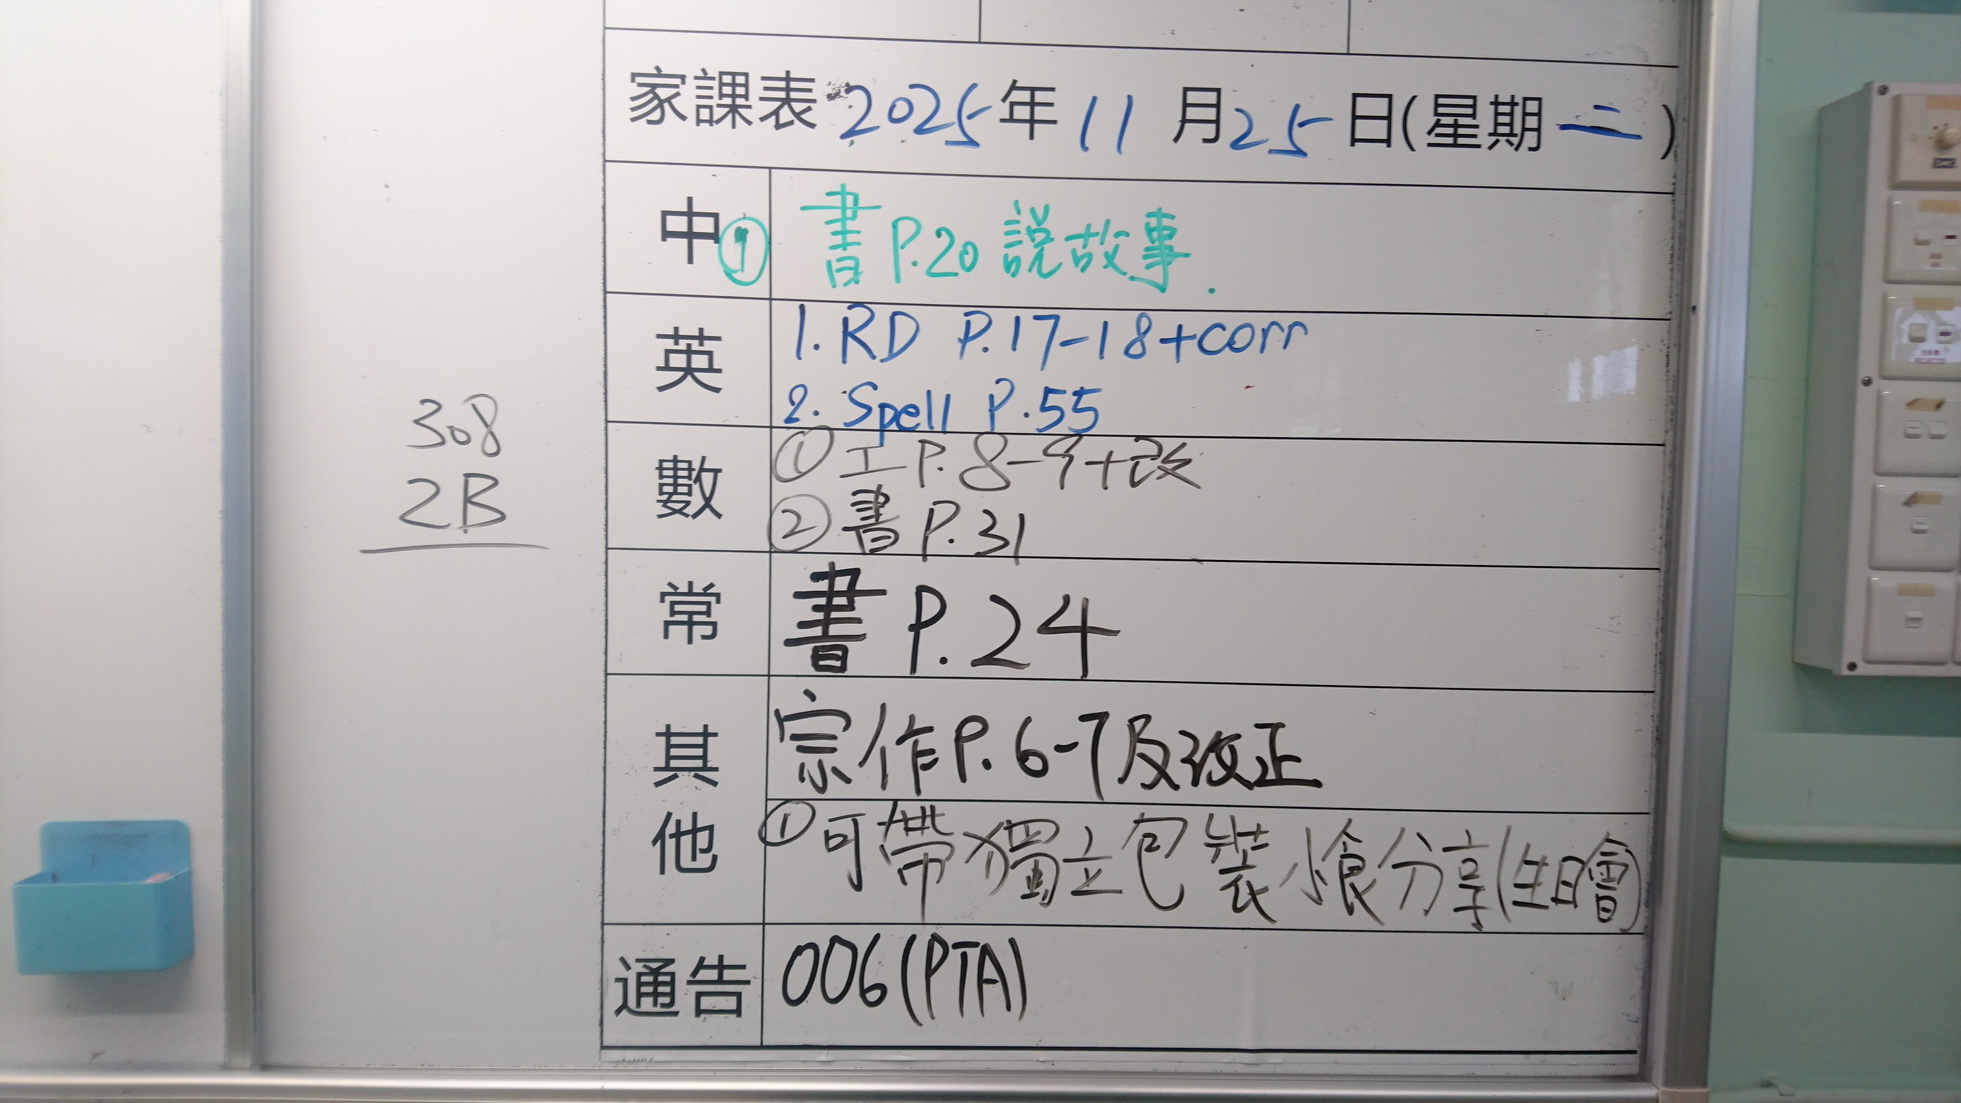 家課表 2025年11月25日(星期二)
中 ① 書 P.20 說故事.
英 1. RD P.17-18+corr
2. Spell P.55
數 ① 工P.8-9+改
② 書 P.31
常 書 P.24
其他 宗作P.6-7及改正
① 可帶獨立包裝小食分享(生日會)
通告 006(PTA)
308
2B